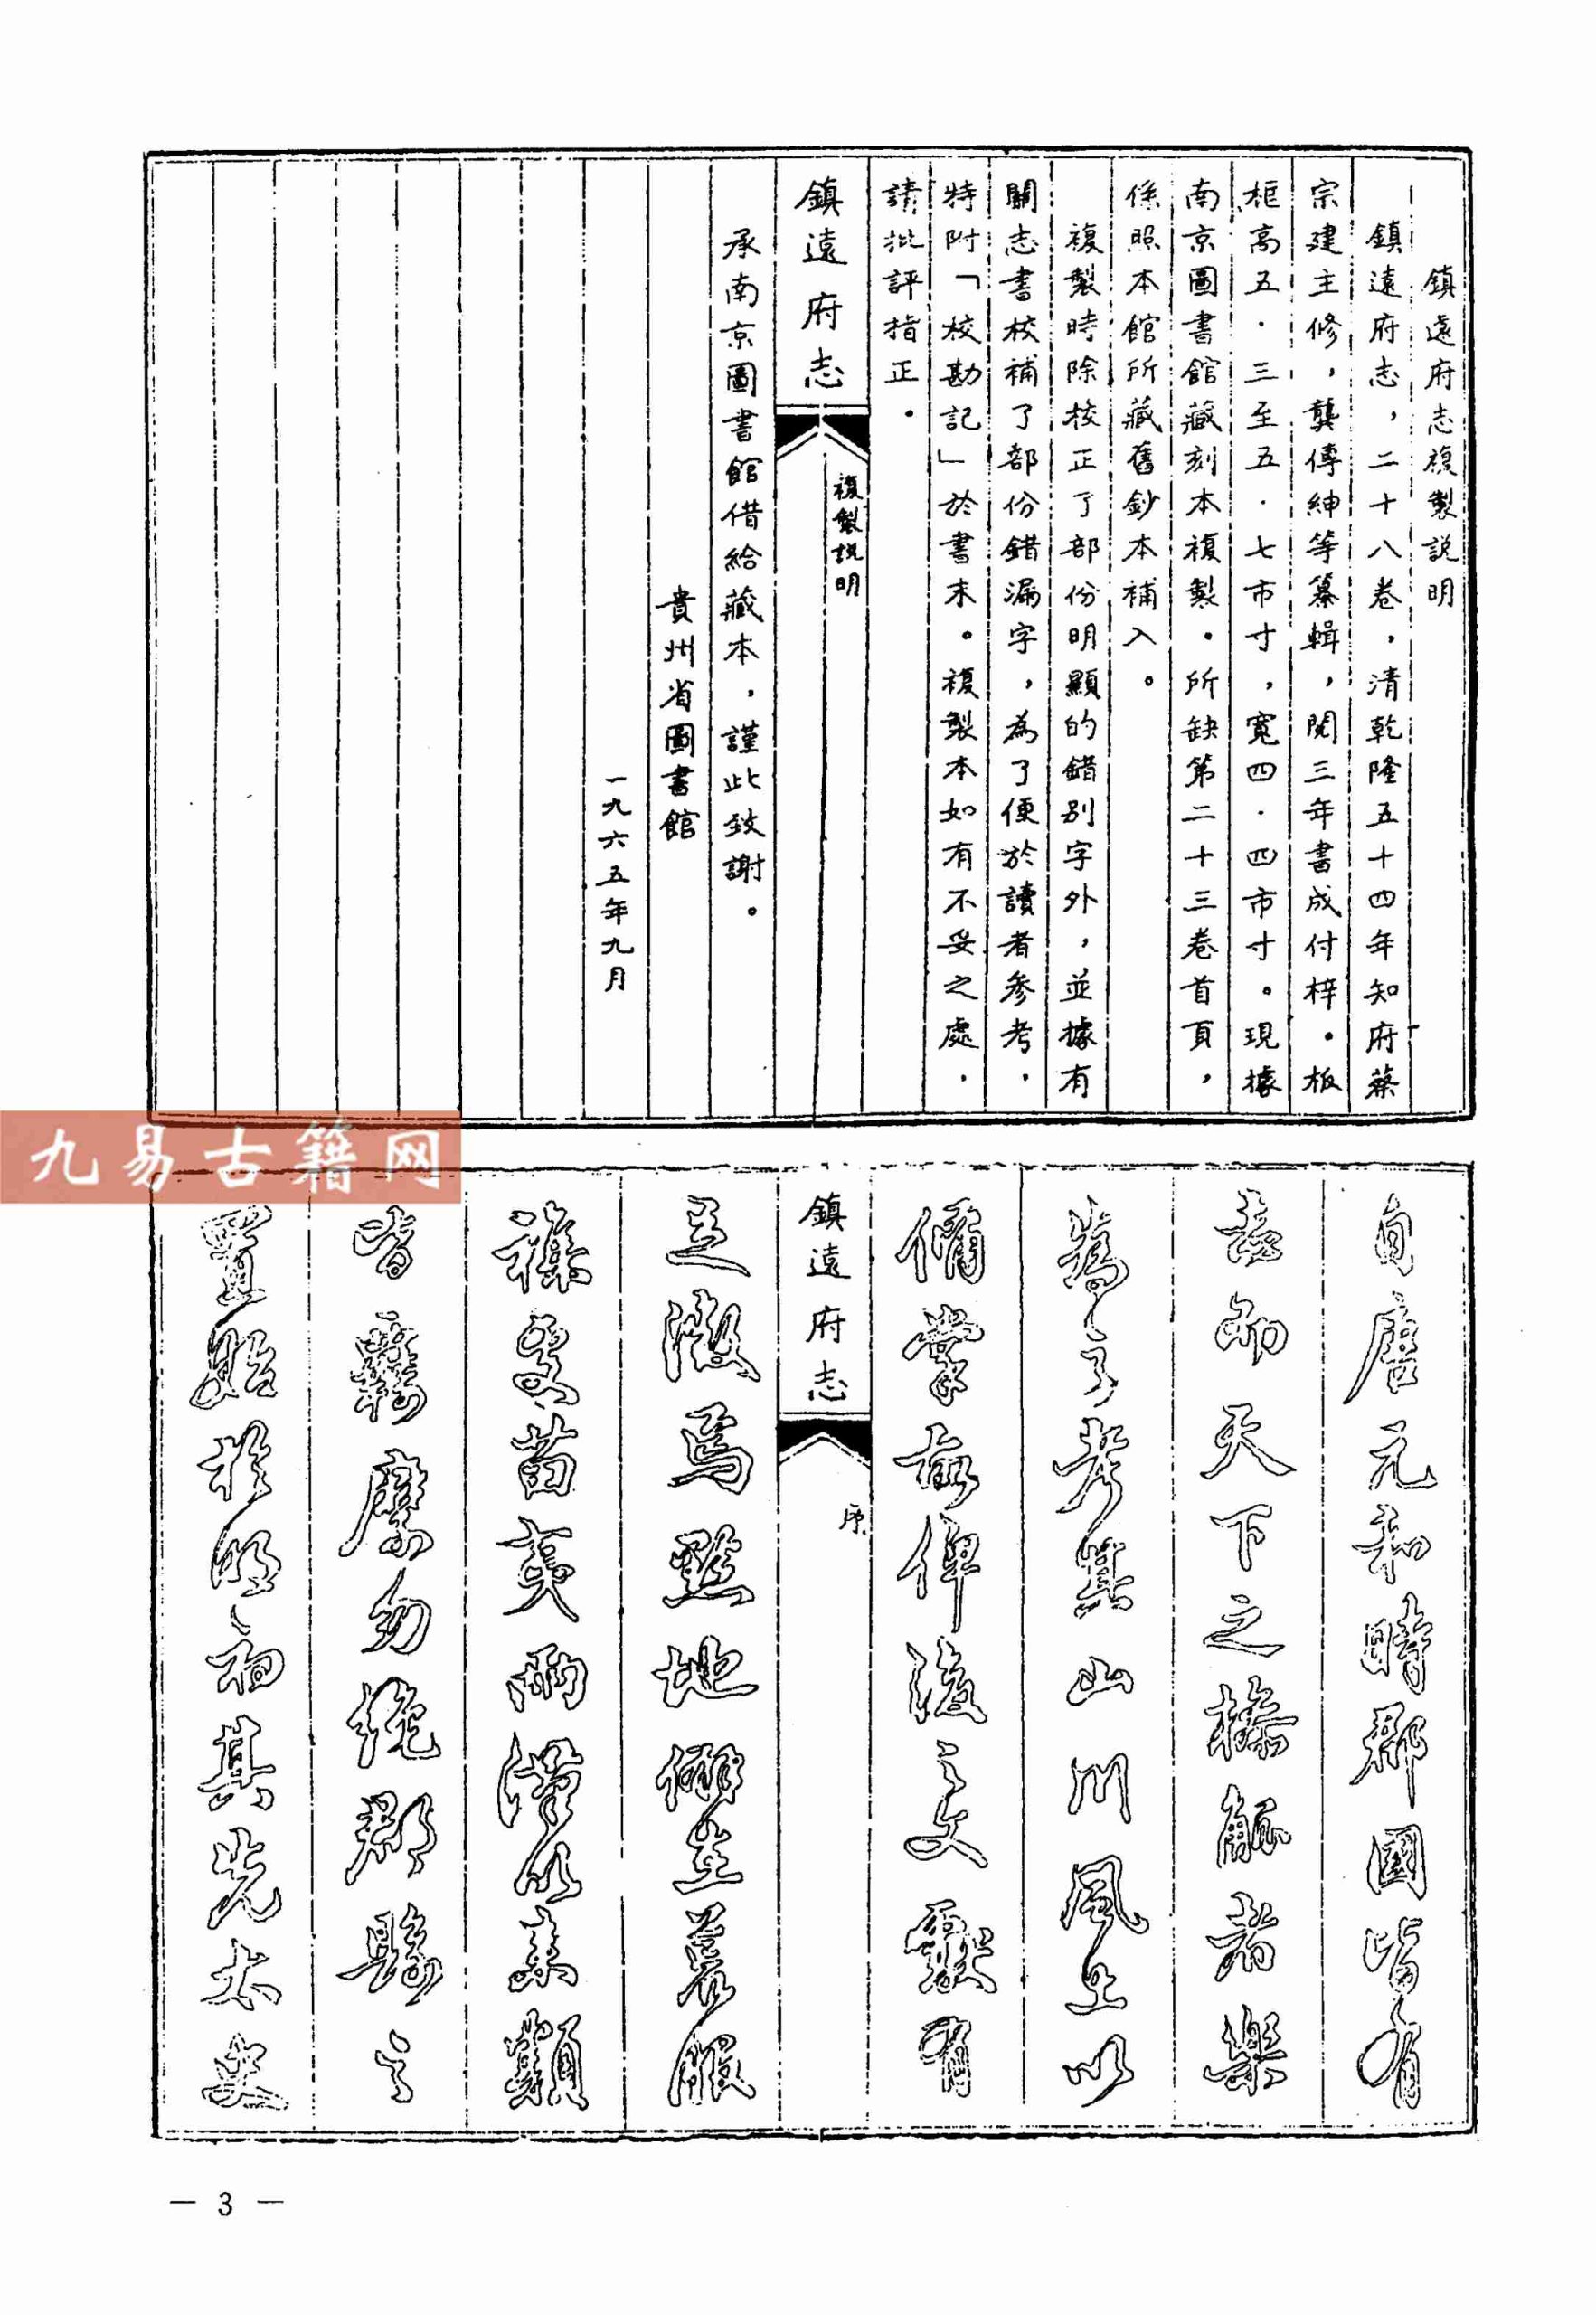 鎮遠府志複製説明
鎮遠府志，二十八卷，清乾隆五十四年知府蔡
宗建主修，龔傳紳等纂輯，閱三年書成付梓。板
框高五·三至五·七市寸，寬四·四市寸。現據
南京圖書館藏刻本複製。所缺第二十三卷首頁，
係照本館所藏舊鈔本補入。
複製時除校正了部份明顯的錯別字外，並據有
關志書校補了部份錯漏字，為了便於讀者參考，
特附「校勘記」於書末。複製本如有不妥之處，
請批評指正。
鎮遠府志
複製説明
承南京圖書館借給藏本，謹此致謝。
貴州省圖書館
一九六五年九月
九易古籍网
自唐元和時郡國皆有
志而天下之操觚者樂
為之考其山川風土以
備掌故俾後之文獻有
鎮遠府志
序
足徵焉黔地僻在荒服
雜更苗夷兩漢以來類
皆羈縻勿絶郡縣之
置始於明初其先太史
— 3 —